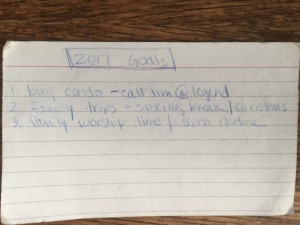 2017 Goals
1. buy condo - call him @ legend
2. family trips - spring break / christmas
3. family worship time / routine